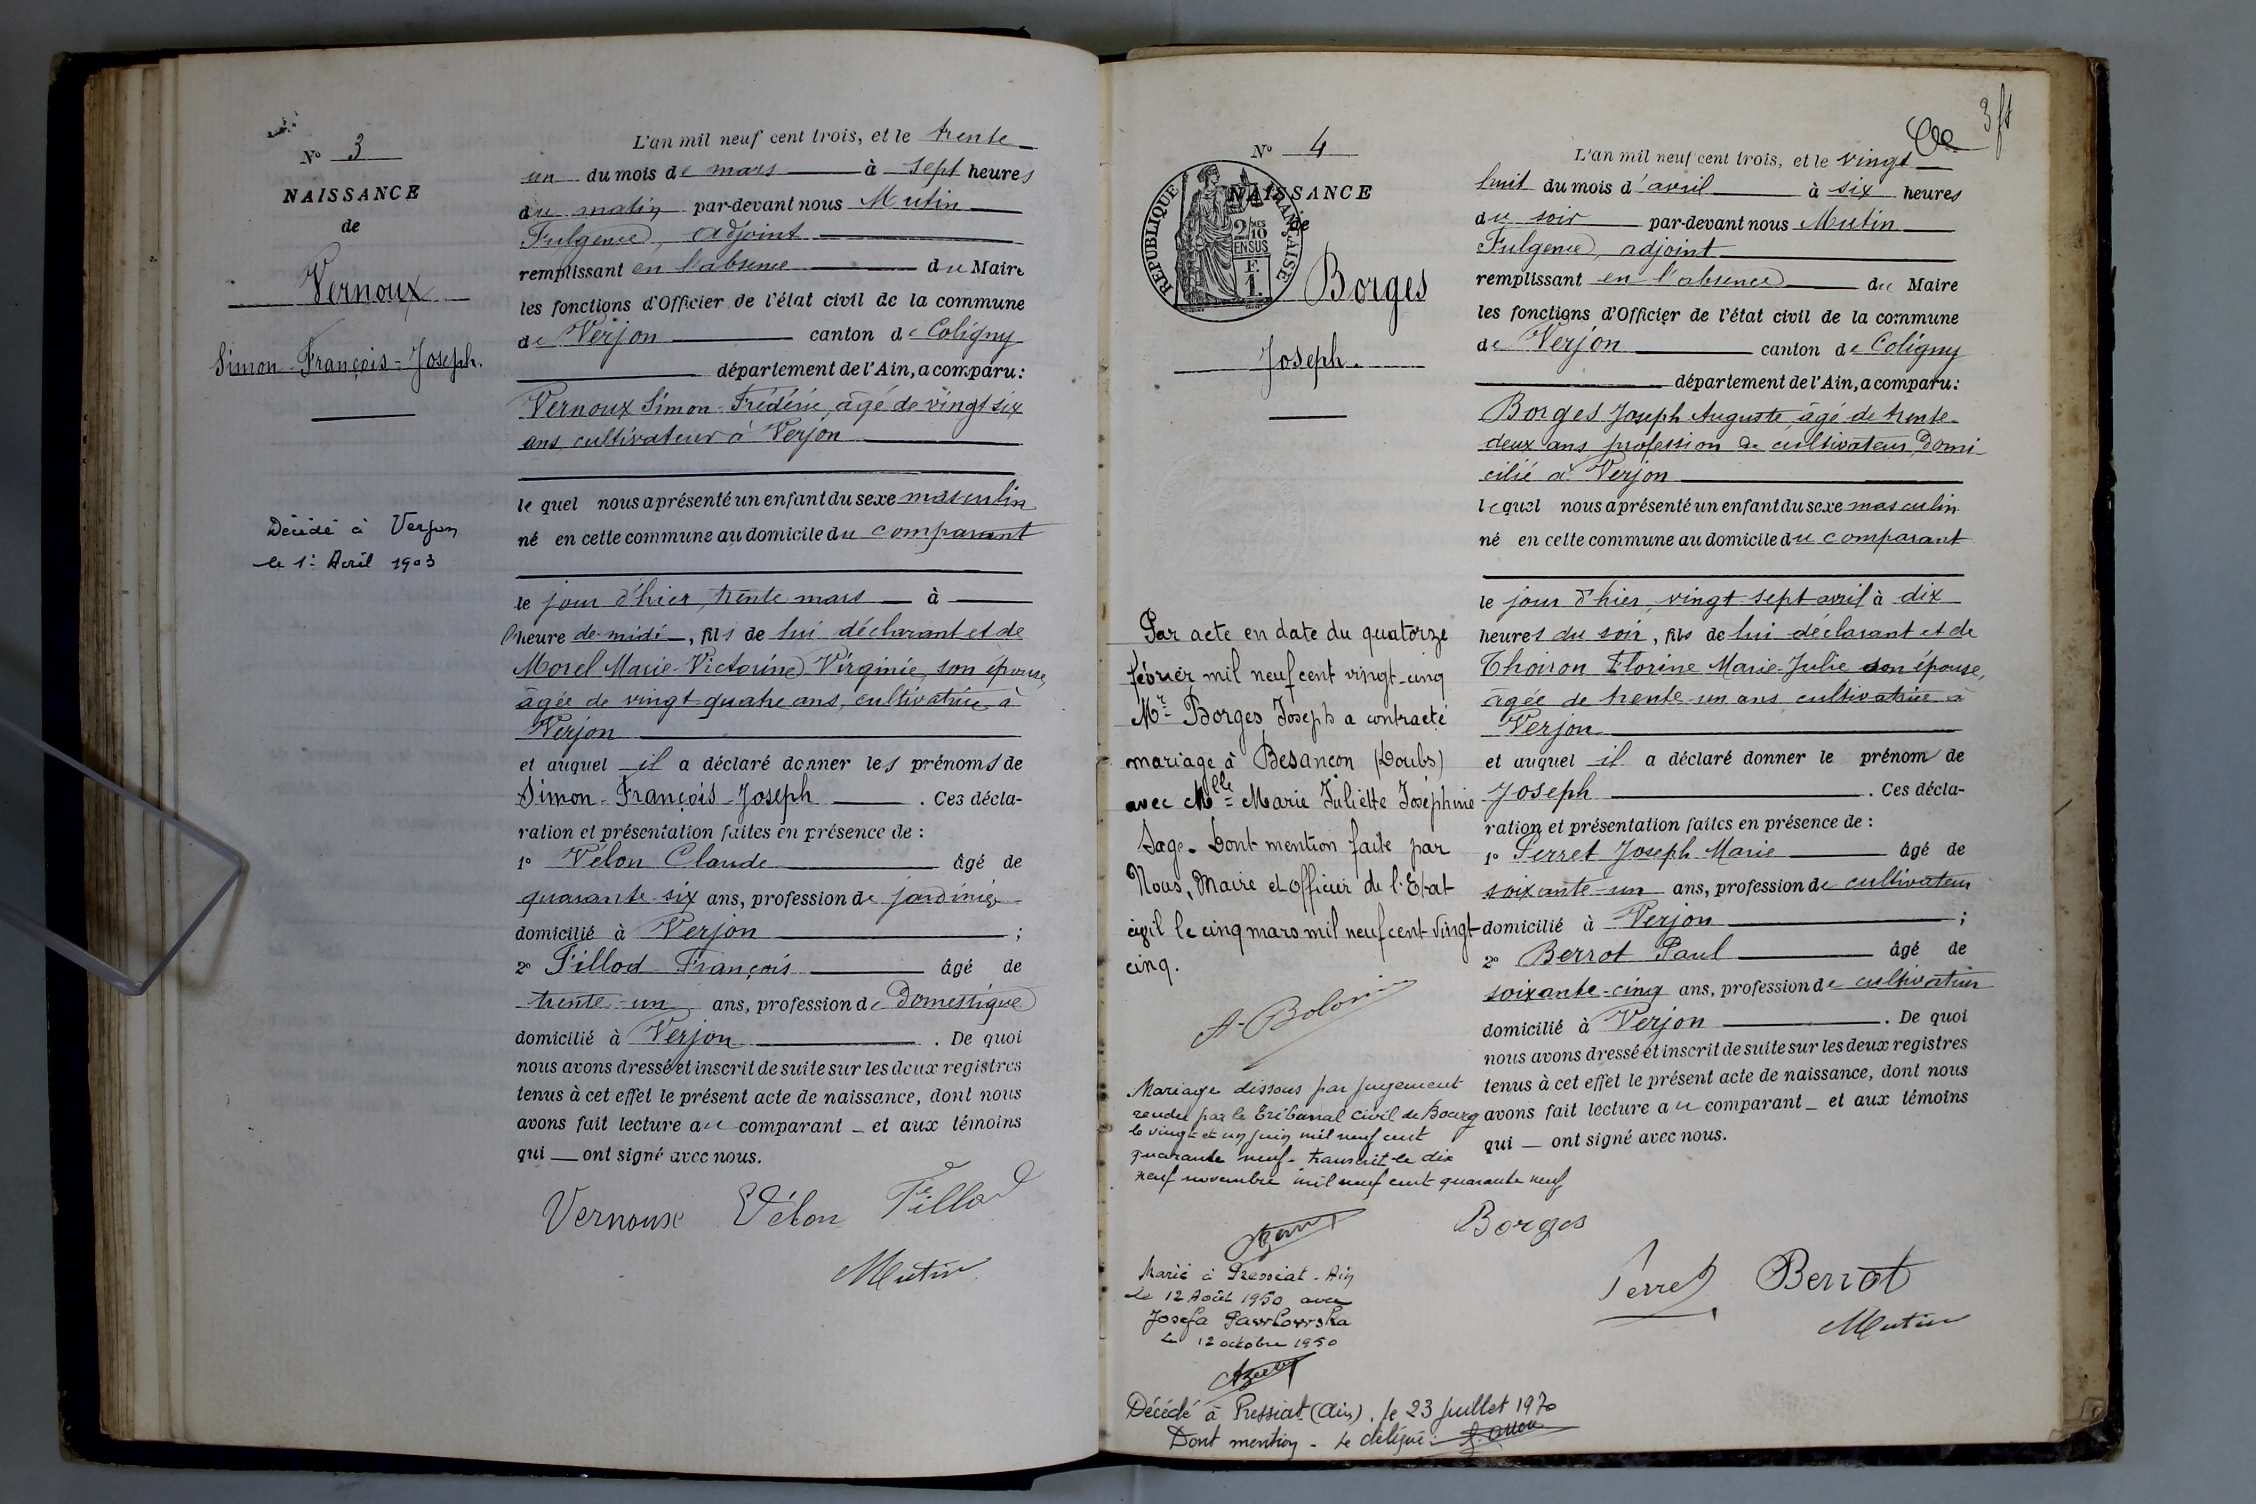 N° 3
NAISSANCE
de
Vernoux
Simon-François-Joseph.
Décédé à Verjon
le 1er Avril 1903
L'an mil neuf cent trois, et le trente
un du mois de mars à sept heures
du matin par-devant nous Mutin
Fulgence, adjoint
remplissant en l'absence du Maire
les fonctions d'Officier de l'état civil de la commune
de Verjon canton de Coligny
département de l'Ain, a comparu:
Vernoux Simon-Frédéric, âgé de vingt six
ans, cultivateur à Verjon
le quel nous a présenté un enfant du sexe masculin
né en cette commune au domicile du comparant
le jour d'hier, trente mars à
heure de midi, fils de lui déclarant et de
Morel Marie-Victorine Virginie, son épouse,
âgée de vingt quatre ans, cultivatrice à
Verjon
et auquel il a déclaré donner les prénoms de
Simon-François-Joseph. Ces décla-
ration et présentation faites en présence de :
1° Vélon Claude âgé de
quarante six ans, profession de jardinier
domicilié à Verjon ;
2° Tillod François âgé de
trente-un ans, profession de Domestique
domicilié à Verjon. De quoi
nous avons dressé et inscrit de suite sur les deux registres
tenus à cet effet le présent acte de naissance, dont nous
avons fait lecture au comparant et aux témoins
qui ont signé avec nous.
Vernoux Vélon Tillod
Mutin
3 ft
N° 4
NAISSANCE
de
REPUBLIQUE FRANÇAISE
2/10
EN SUS
F.
1.
Borges
Joseph.
Par acte en date du quatorze
février mil neuf cent vingt-cinq
Mr Borges Joseph a contracté
mariage à Besançon (Doubs)
avec Mlle Marie Juliette Joséphine
Sage. Dont mention faite par
Nous, Maire et Officier de l'Etat
civil le cinq mars mil neuf cent vingt-
cinq.
Mariage dissous par jugement
rendu par le Tribunal Civil de Bourg
le vingt et un juin mil neuf cent
quarante neuf - transcrit le dix
neuf novembre mil neuf cent quarante neuf
Marié à Pressiat - Ain
le 12 Août 1950 avec
Josefa Pawlowska
le 12 octobre 1950
Décédé à Pressiat (Ain), le 23 juillet 1970
Dont mention - Le délégué:
L'an mil neuf cent trois, et le vingt
huit du mois d'avril à six heures
du soir par-devant nous Mutin
Fulgence, adjoint
remplissant en l'absence du Maire
les fonctions d'Officier de l'état civil de la commune
de Verjon canton de Coligny
département de l'Ain, a comparu:
Borges Joseph Auguste, âgé de trente-
deux ans, profession de cultivateur, Domi-
cilié à Verjon
lequel nous a présenté un enfant du sexe masculin
né en cette commune au domicile du comparant
le jour d'hier, vingt sept avril à dix
heures du soir, fils de lui déclarant et de
Thoiron Florine Marie-Julie son épouse,
âgée de trente-un ans, cultivatrice à
Verjon
et auquel il a déclaré donner le prénom de
Joseph. Ces décla-
ration et présentation faites en présence de :
1° Perret Joseph Marie âgé de
soixante-un ans, profession de cultivateur
domicilié à Verjon ;
2° Berrot Paul âgé de
soixante-cinq ans, profession de cultivateur
domicilié à Verjon. De quoi
nous avons dressé et inscrit de suite sur les deux registres
tenus à cet effet le présent acte de naissance, dont nous
avons fait lecture au comparant et aux témoins
qui ont signé avec nous.
Borges
Perret Berrot
Mutin